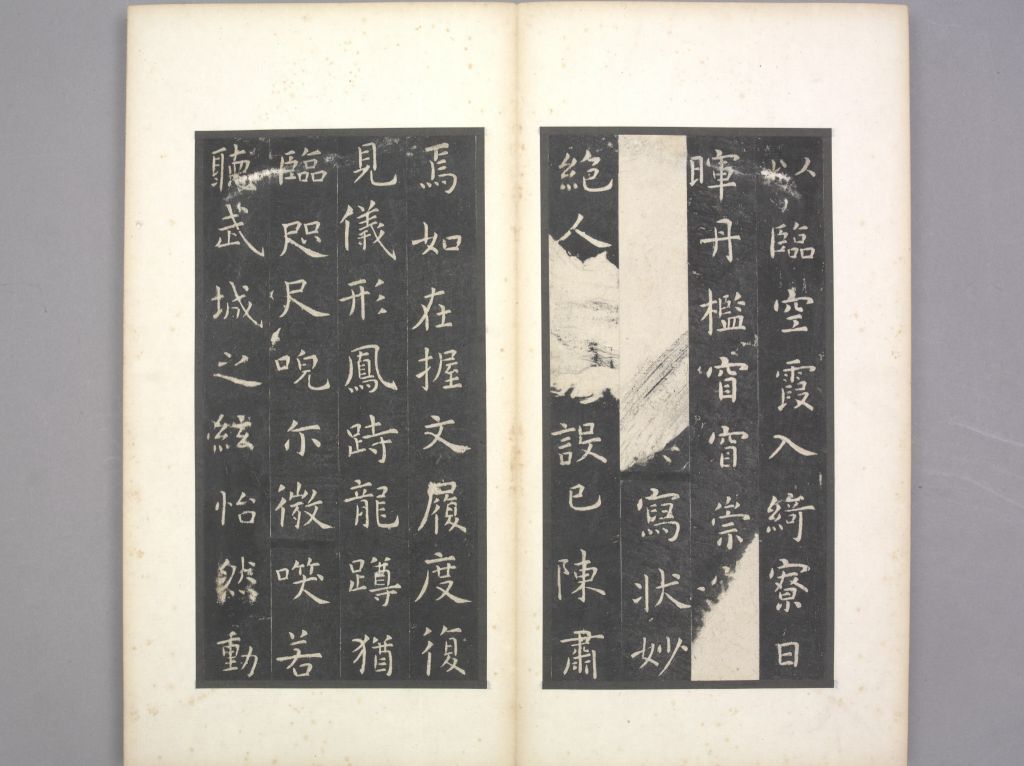 以臨空霞入綺寮日
暉丹檻窅窅崇
寫狀妙
絕人設已陳肅
焉如在握文履度復
見儀形鳳跱龍蹲猶
臨咫尺唲尓微咲若
聽武城之絃怡然動